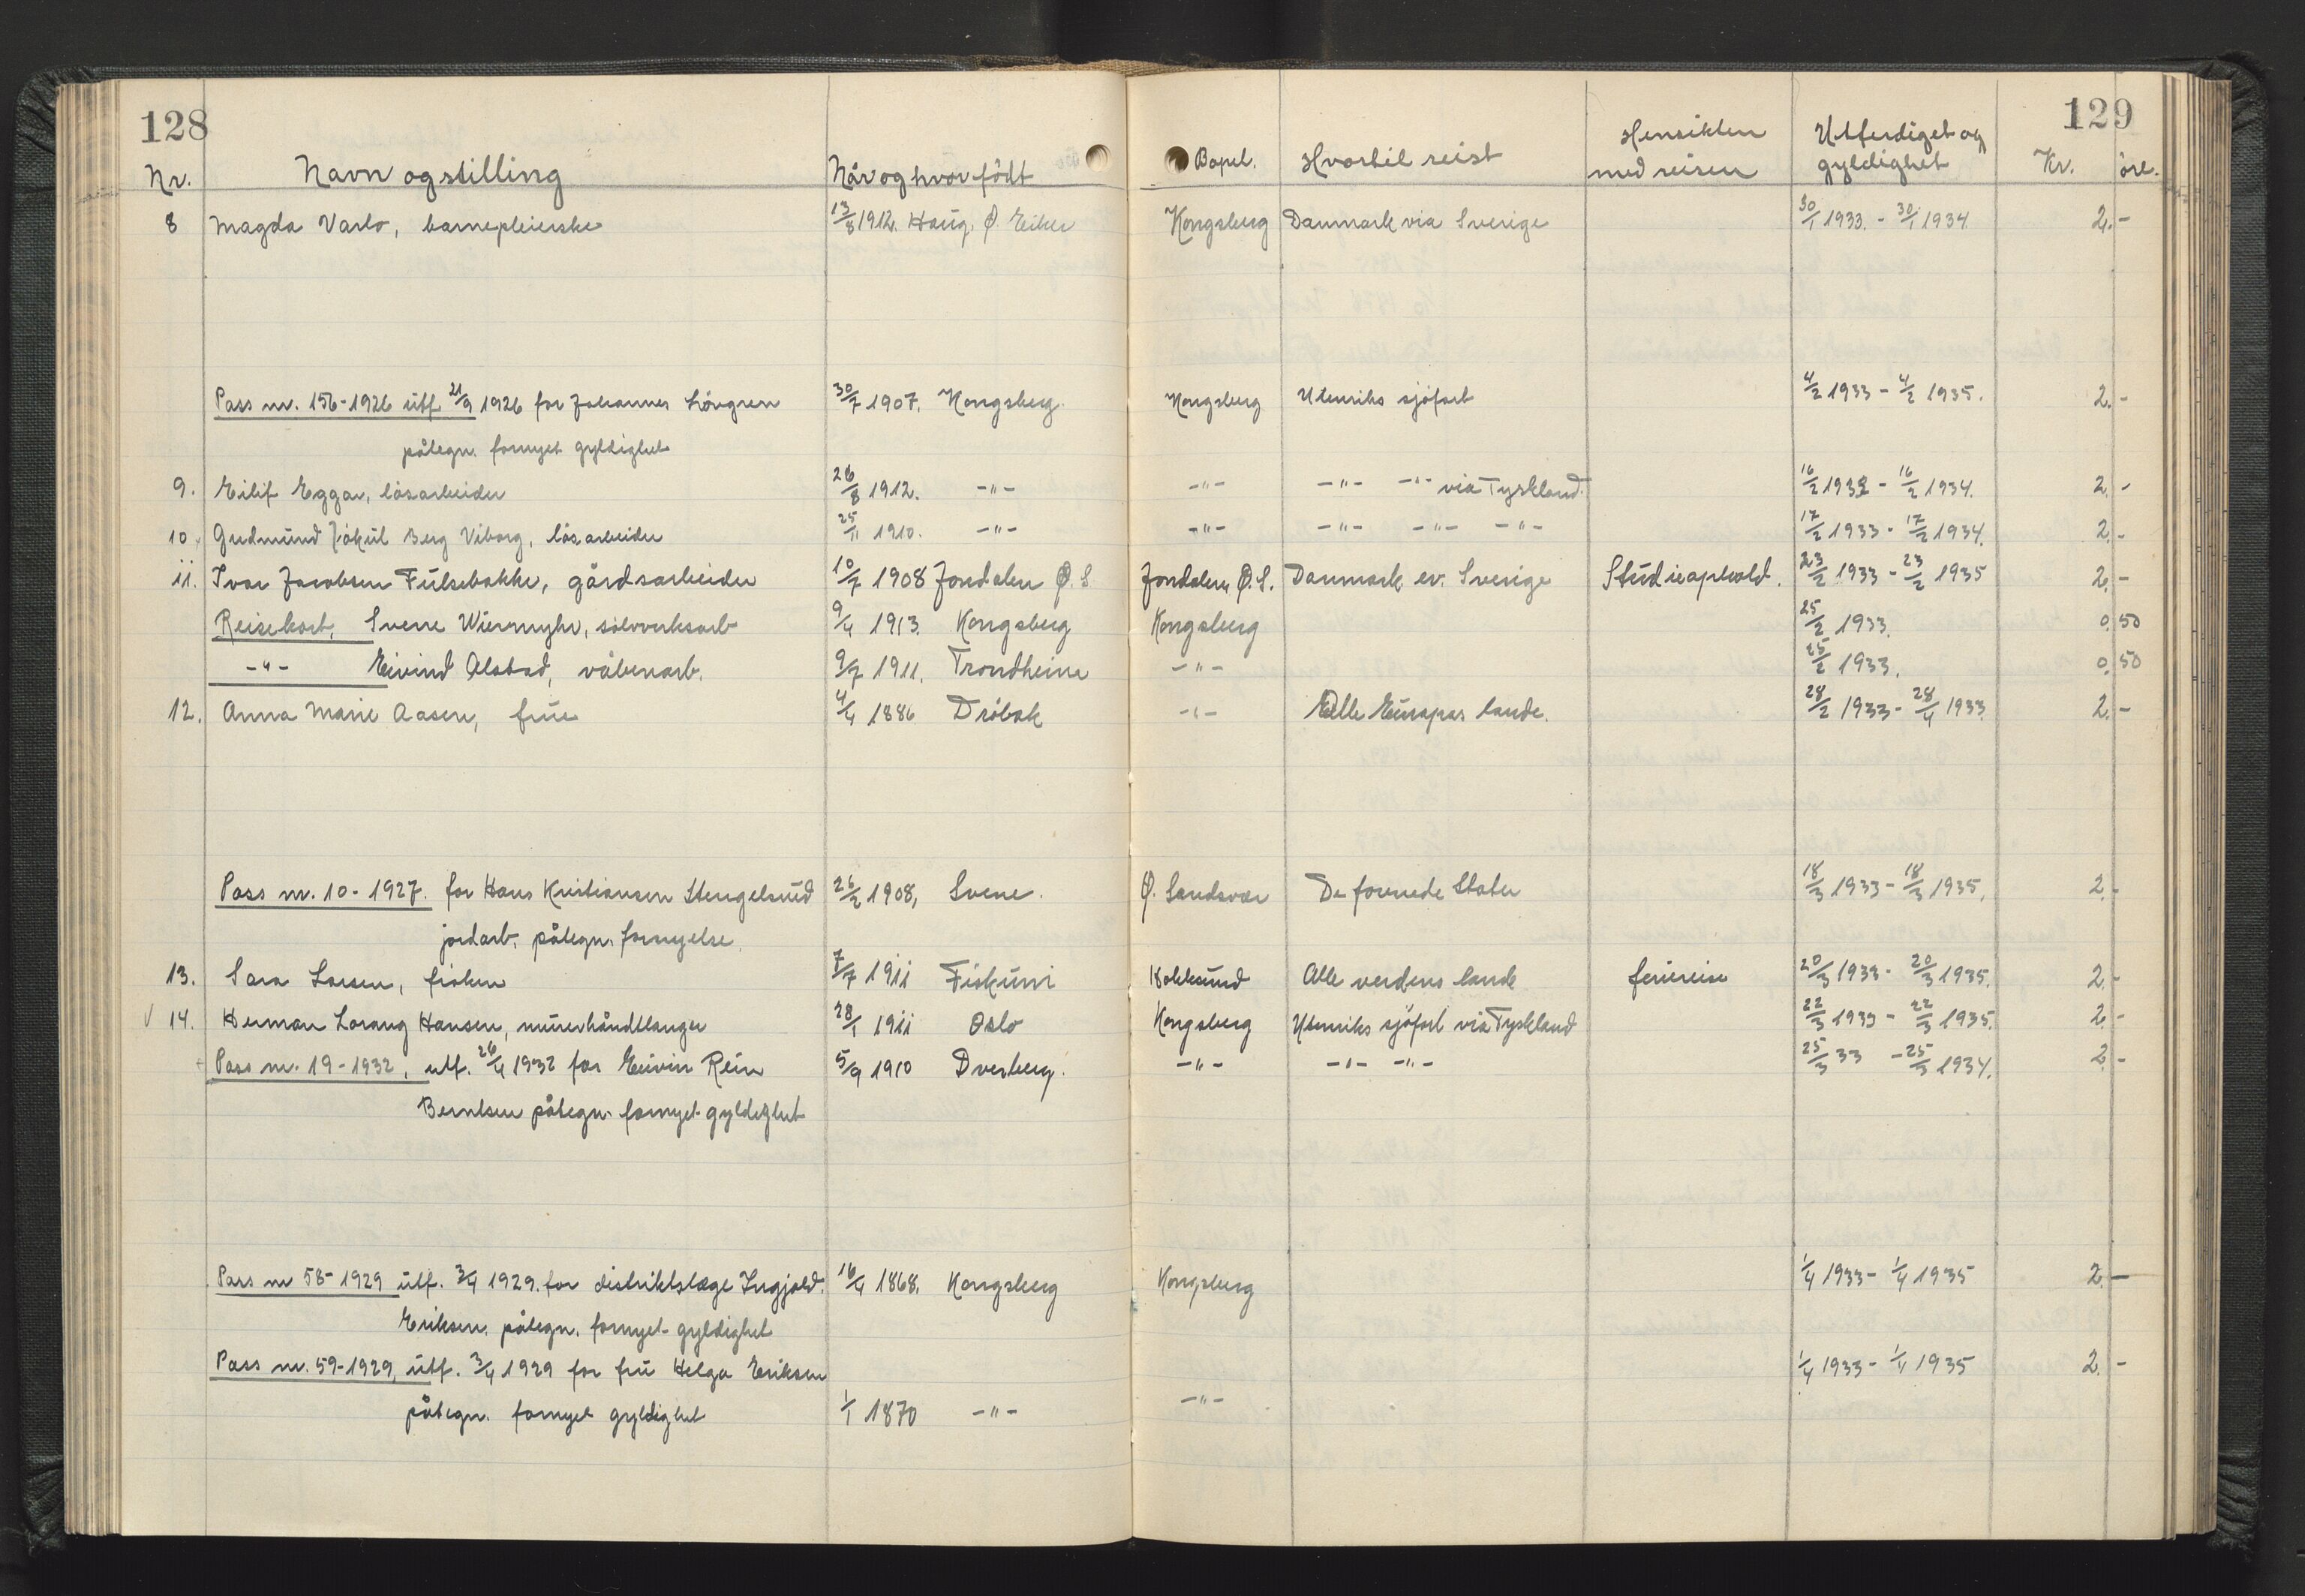 128
129
Nr. Navn og stilling Når og hvor född Bopel. Hvortil reist Hensikten med reisen Utferdiget og gyldighet Kr. öre.
8 Magda Varlo, barnepleierske 13/8 1912. Haug, Ø. Eiker Kongsberg Danmark via Sverige 30/1 1933. - 30/1 1934 2. -
Pass nr. 156-1926 utf. 21/9 1926 for Johannes Lövgren 30/7 1907. Kongsberg. Kongsberg Utenriks sjöfart 4/2 1933 - 4/2 1935. 2. -
påtegn. fornyet gyldighet
9. Eilif Eggar, lösarbeider 26/8 1912. -"- -"- -"- -"- via Tyskland. 16/2 1933 - 16/2 1934. 2. -
10 Gudmund Jökul Berg Viborg, lösarbeider 25/11 1910. -"- -"- -"- -"- -"- 17/2 1933 - 17/2 1934. 2. -
11. Ivar Jacobsen Fulsebakke, gårdsarbeider 10/7 1908 Jondalen Ø. S Jondalen Ø. S. Danmark ev. Sverige Studieophold. 23/2 1933 - 23/2 1935 2. -
Reisekort, Sverre Wiermyhr, sölvverksarb 9/4 1913. Kongsberg Kongsberg 25/2 1933. 0. 50
-"- Eivind Alstad, våbenarb. 9/7 1911. Trondheim -"- 25/2 1933. 0. 50
12. Anna Marie Aasen, frue 4/4 1886 Dröbak -"- Alle Europas lande. 28/2 1933 - 28/4 1933. 2. -
Pass nr. 10 - 1927. for Hans Kristiansen Stengelsrud 26/2 1908, Svene. Ø. Sandsvær De forenede Stater 18/3 1933 - 18/3 1935. 2. -
jordarb. påtegn. fornyelse.
13. Sara Larsen, fröken 7/7 1911 Fiskum Hokksund Alle verdens lande feriereise 20/3 1933 - 20/3 1935. 2. -
√ 14. Herman Lorang Hansen, murerhåndtlanger 28/1 1911 Oslo Kongsberg Utenriks sjöfart via Tyskland 22/3 1933 - 22/3 1935. 2. -
Pass nr. 19 - 1932, utf. 26/4 1932 for Eivin Rein 5/9 1910 Dverberg. -"- -"- -"- 25/3 33 - 25/3 1934. 2. -
Berntsen påtegn. fornyet gyldighet
Pass nr 58 - 1929 utf. 3/4 1929. for distriktslæge Ingjald. 16/4 1868. Kongsberg Kongsberg 1/4 1933 - 1/4 1935 2. -
Eriksen. påtegn. fornyet gyldighet
Pass nr. 59-1929, utf. 3/4 1929 for fru Helga Eriksen 1/4 1933 - 1/4 1935 2. -
påtegn. fornyet gyldighet 1/1 1870 -"- -"-